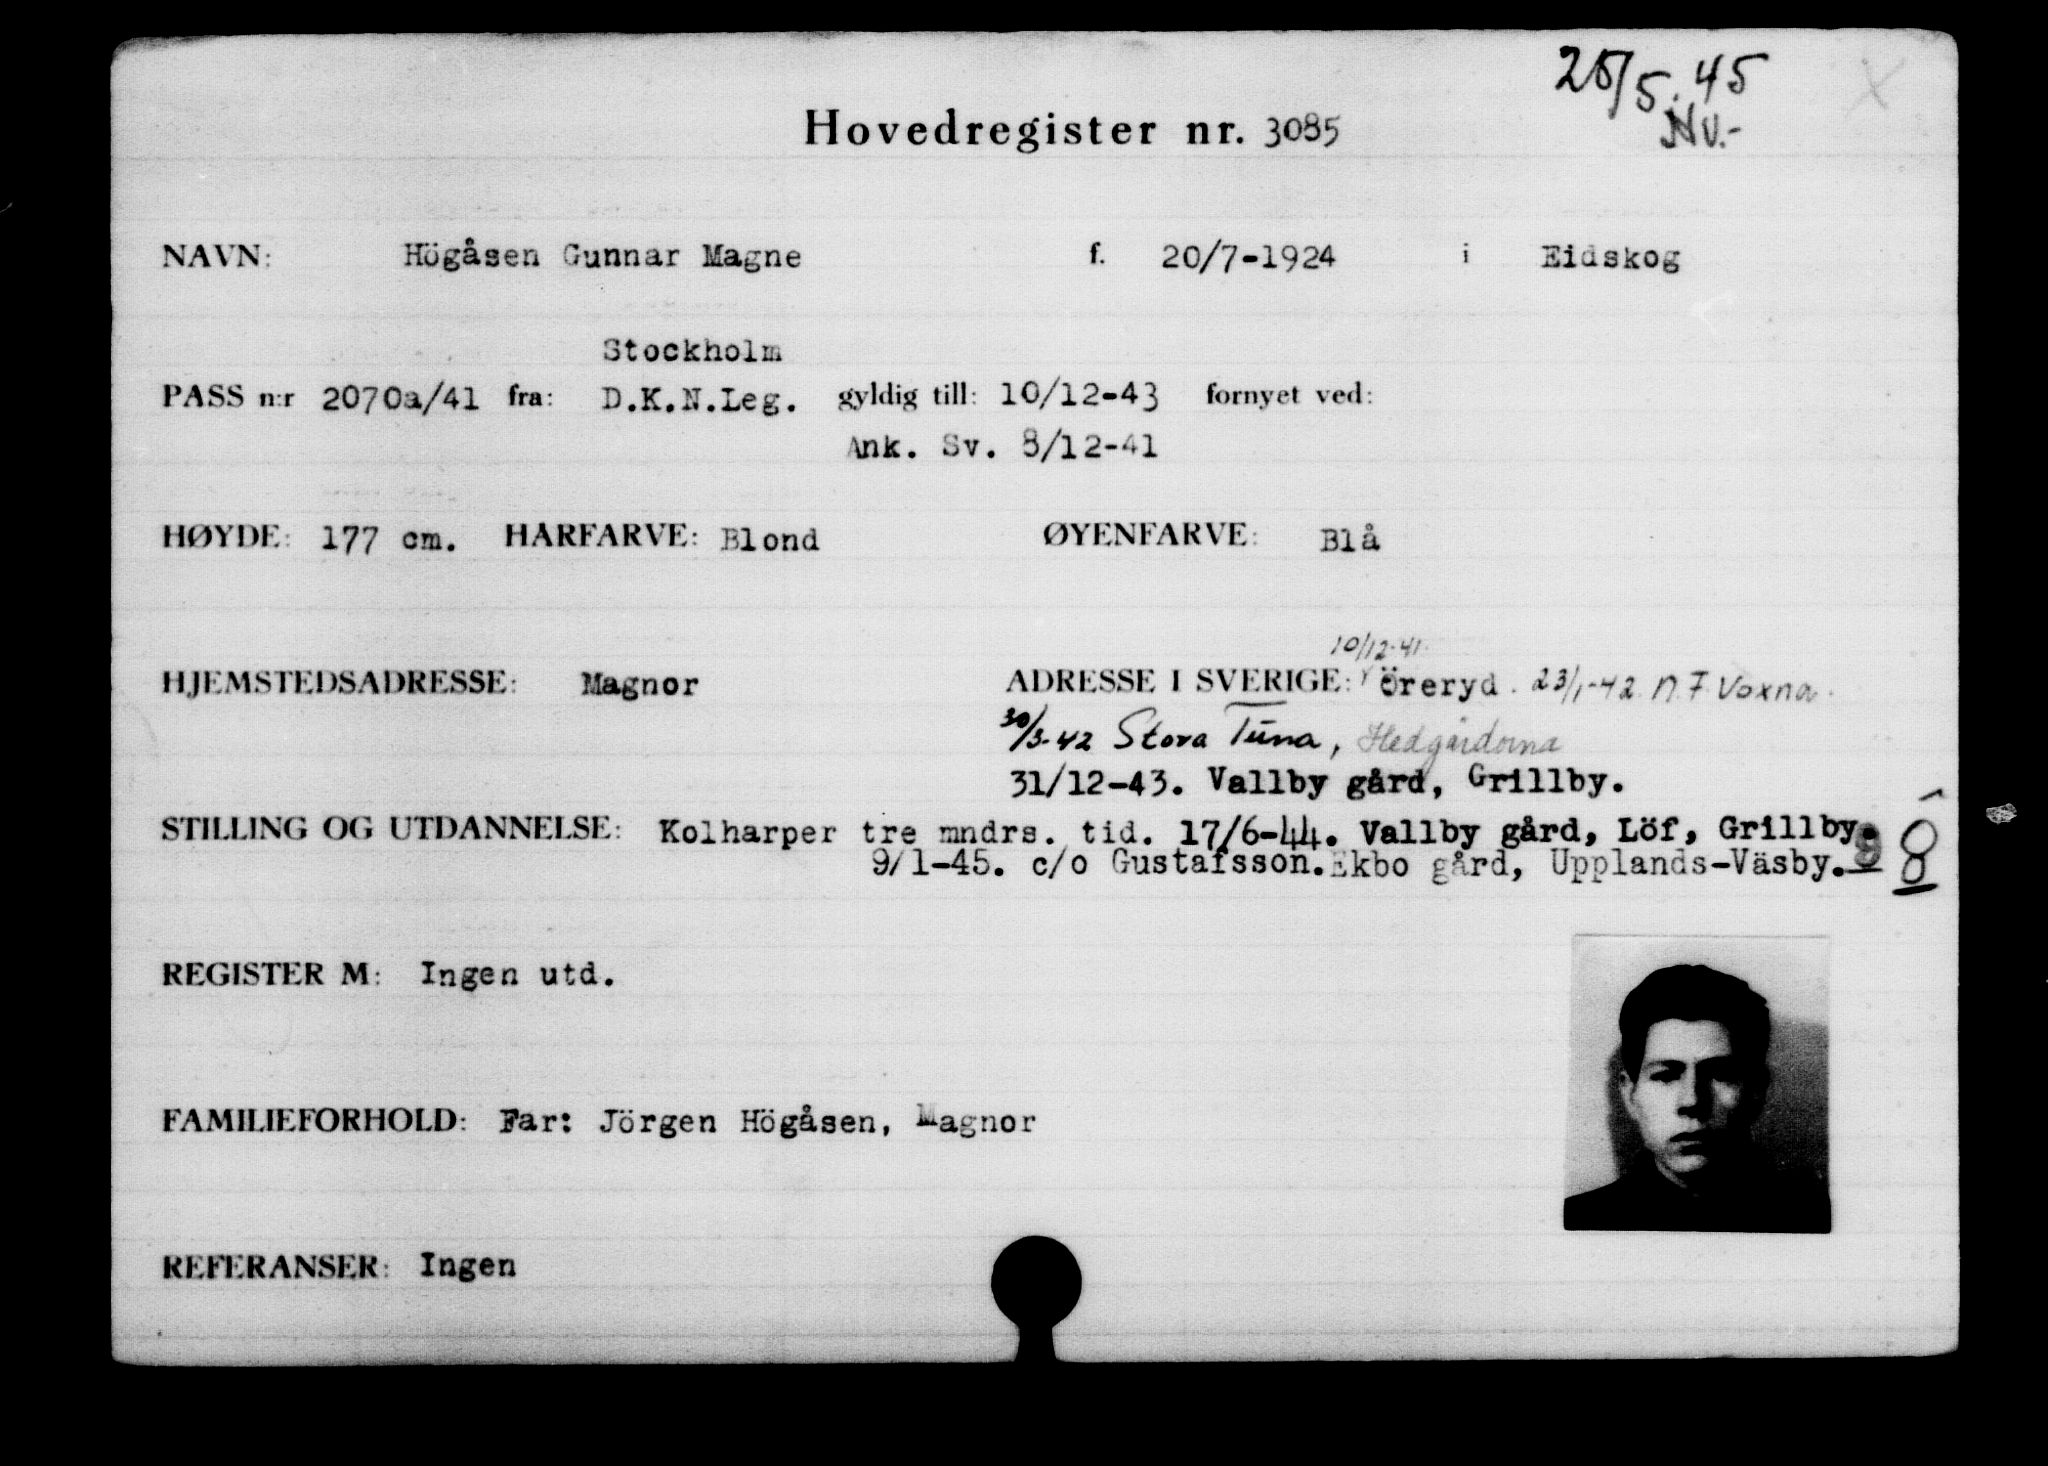 25/5.45
NV.-
Hovedregister nr. 3085
NAVN: Högåsen Gunnar Magne f. 20/7-1924 i Eidskog
Stockholm
PASS n:r 2070a/41 fra: D.K.N.Leg. gyldig till: 10/12-43 fornyet ved:
Ank. Sv. 8/12-41
HØYDE: 177 cm. HÅRFARVE: Blond ØYENFARVE: Blå
10/12-41
HJEMSTEDSADRESSE: Magnor ADRESSE I SVERIGE: Öreryd. 23/1-42 N.F. Voxna.
30/3-42 Stora Tuna, Hedgårdorna
31/12-43. Vallby gård, Grillby.
STILLING OG UTDANNELSE: Kolharper tre mndrs. tid. 17/6-44. Vallby gård, Löf, Grillby.
9/1-45. c/o Gustafsson.Ekbo gård, Upplands-Väsby. 8
REGISTER M: Ingen utd.
FAMILIEFORHOLD: Far: Jörgen Högåsen, Magnor
REFERANSER: Ingen